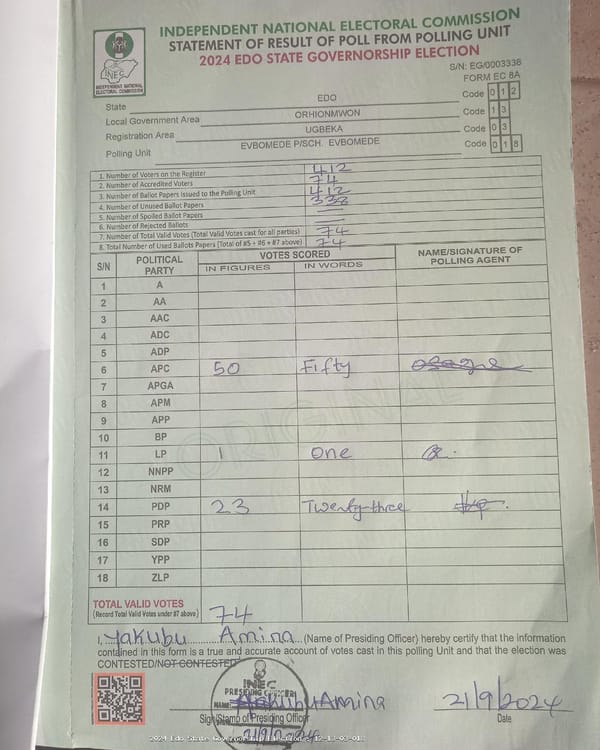 INDEPENDENT NATIONAL ELECTORAL COMMISSION
STATEMENT OF RESULT OF POLL FROM POLLING UNIT
2024 EDO STATE GOVERNORSHIP ELECTION
INEC
INDEPENDENT NATIONAL
ELECTORAL COMMISSION
S/N: EG/0003338
FORM EC 8A
State EDO Code 0 1 2
Local Government Area ORHIONMWON Code 1 3
Registration Area UGBEKA Code 0 3
Polling Unit EVBOMEDE P/SCH. EVBOMEDE Code 0 1 8
1. Number of Voters on the Register 412
2. Number of Accredited Voters 74
3. Number of Ballot Papers Issued to the Polling Unit 412
4. Number of Unused Ballot Papers 338
5. Number of Spoiled Ballot Papers
6. Number of Rejected Ballots
7. Number of Total Valid Votes (Total Valid Votes cast for all parties) 74
8. Total Number of Used Ballots Papers (Total of #5 + #6 + #7 above) 74
S/N POLITICAL PARTY VOTES SCORED NAME/SIGNATURE OF POLLING AGENT
IN FIGURES IN WORDS
1 A
2 AA
3 AAC
4 ADC
5 ADP
6 APC 50 Fifty
7 APGA
8 APM
9 APP
10 BP
11 LP 1 One
12 NNPP
13 NRM
14 PDP 23 Twenty-three
15 PRP
16 SDP
17 YPP
18 ZLP
ORIGINAL
TOTAL VALID VOTES
(Record Total Valid Votes under #7 above) 74
I, Yakubu Amina (Name of Presiding Officer) hereby certify that the information
contained in this form is a true and accurate account of votes cast in this polling Unit and that the election was
CONTESTED/NOT CONTESTED
INEC
PRESIDING OFFICER
NAME Yakubu Amina 21/9/2024
Sign/Stamp of Presiding Officer Date
21/9/2024